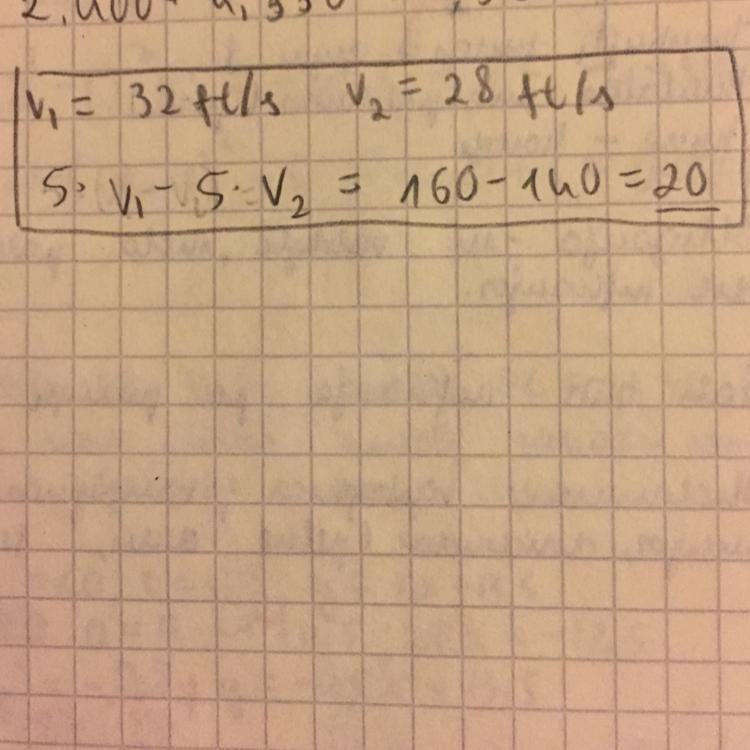 v₁ = 32 ft/s v₂ = 28 ft/s
5· v₁ - 5· v₂ = 160 - 140 = 20